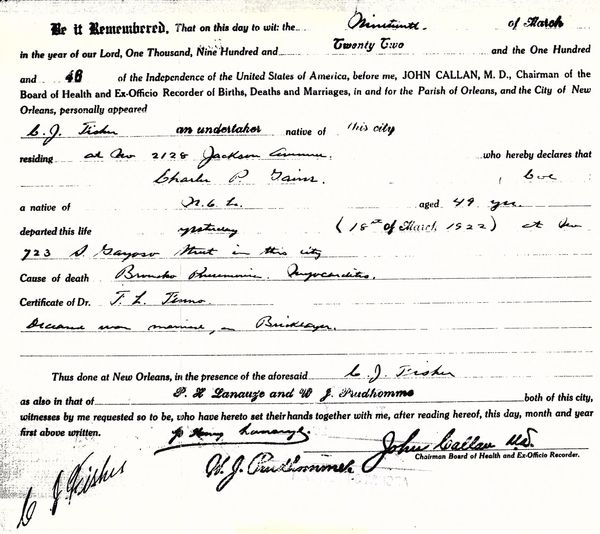 Be it Remembered, That on this day to wit: the Nineteenth of March
in the year of our Lord, One Thousand, Nine Hundred and Twenty Two and the One Hundred
and 46 of the Independence of the United States of America, before me, JOHN CALLAN, M. D., Chairman of the
Board of Health and Ex-Officio Recorder of Births, Deaths and Marriages, in and for the Parish of Orleans, and the City of New
Orleans, personally appeared
C. J. Fisher an undertaker native of this city
residing at No 2128 Jackson Avenue who hereby declares that
Charles P. Gains (Col
a native of N.O. La. aged 49 yrs.
departed this life yesterday (18th of March 1922) at No
723 S. Gayoso Street in this city
Cause of death Broncho Pneumonia. Myocarditis.
Certificate of Dr. T. L.
Deceased was married, a Bricklayer.
Thus done at New Orleans, in the presence of the aforesaid C. J. Fisher
as also in that of P. H Lanauze and W J Prudhomme both of this city,
witnesses by me requested so to be, who have hereto set their hands together with me, after reading hereof, this day, month and year
first above written. P Henry Lanauze
John Callan M.D.
Chairman Board of Health and Ex-Officio Recorder.
W. J. Prudhomme
C J Fisher